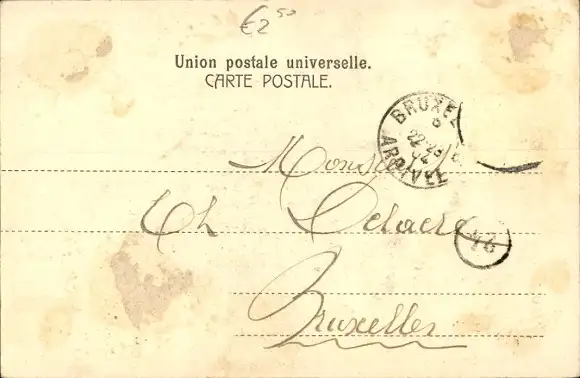 €2 50
Union postale universelle.
CARTE POSTALE.
BRUXEL
8
22-23
ARRIVEE
Ch Delacre
46
Bruxelles